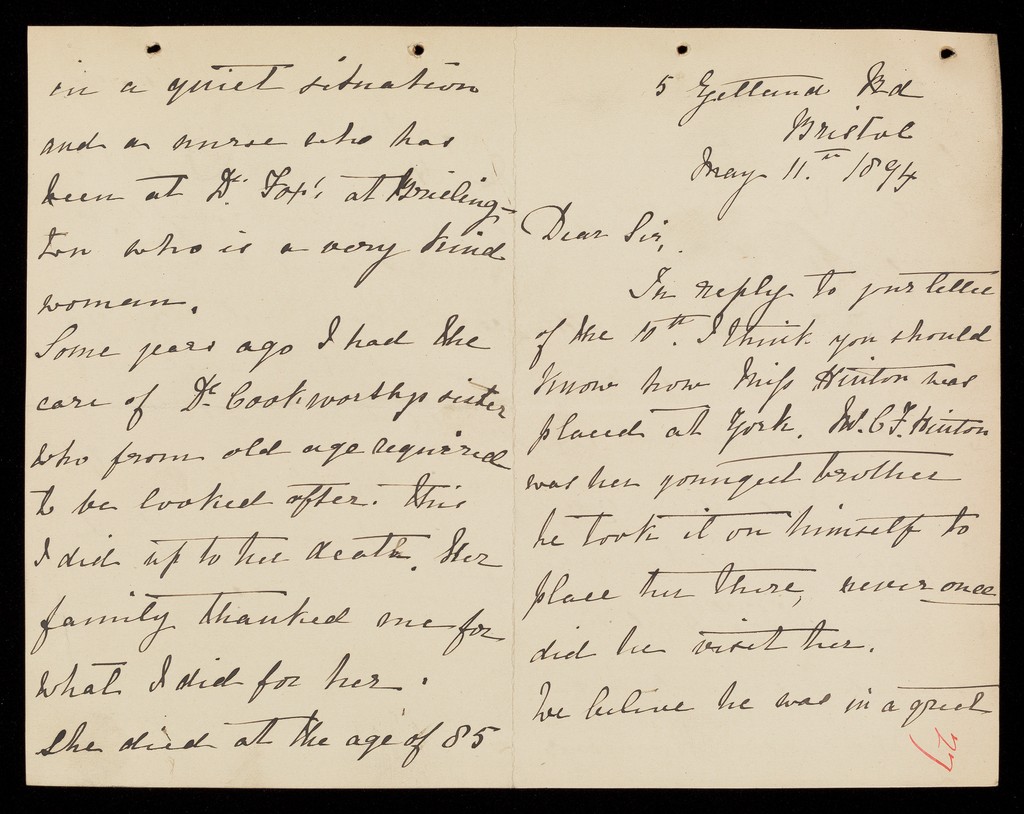 in a quiet situation
and a nurse who has
been at Dr. Fox's at Brisling-
ton who is a very kind
woman.
Some years ago I had the
care of Dr. Cookworthys sister
who from old age required
to be looked after. This
I did up to her death. Her
family thanked me for
what I did for her.
She died at the age of 85
5 Zetland Rd
Bristol
May 11.th 1894
Dear Sir,
In reply to your letter
of the 10th. I think you should
know how Miss Hinton was
placed at York. Mr. C. F. Hinton
was her youngest brother
he took it on himself to
place her there, never once
did he visit her.
We believe he was in a great